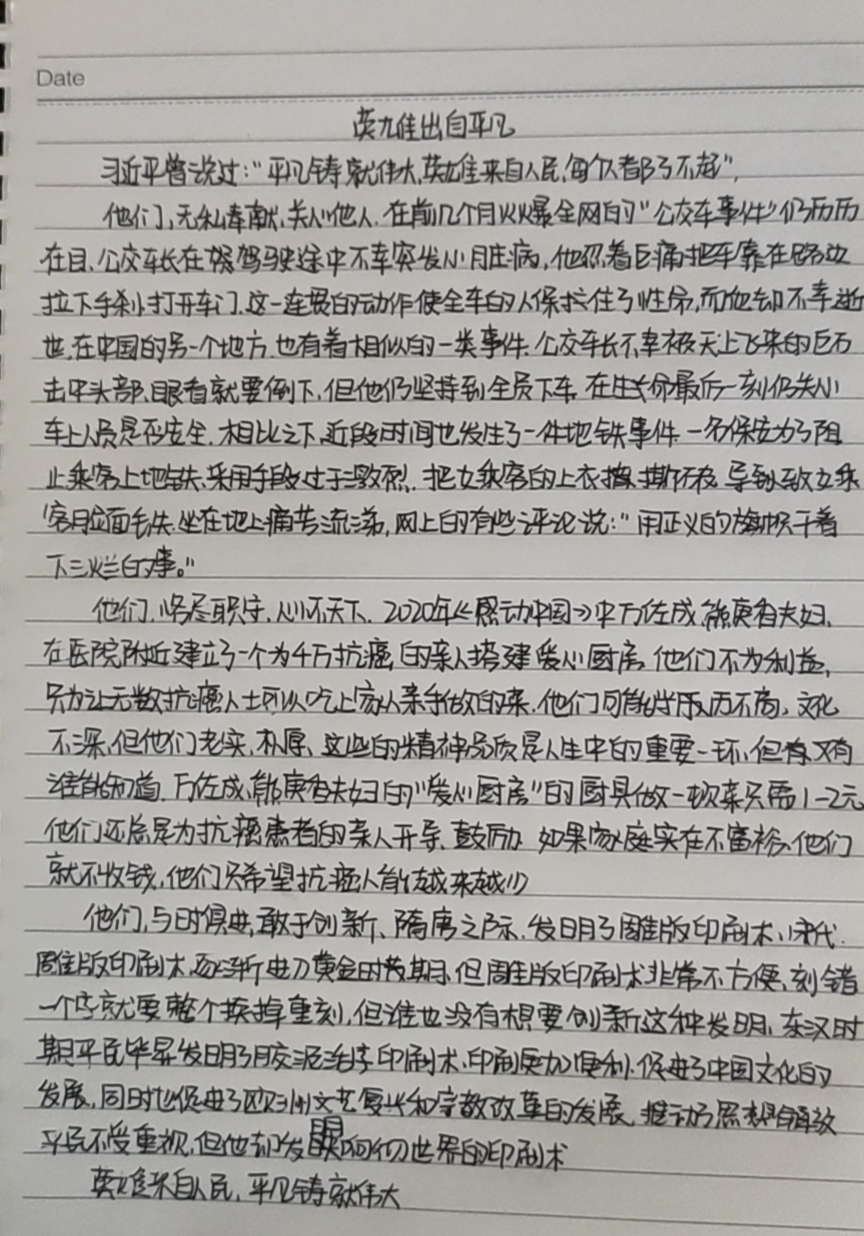 Date
英雄出自平凡
习近平曾说过:“平凡铸就伟大,英雄来自人民,每个人都了不起”,
他们,无私奉献,关心他人.在前几个月火爆全网的“公交车事件”仍历历
在目、公交车长在驾驶途中不幸突发心脏病,他忍着巨痛把车靠在路边
拉下手刹,打开车门.这一连串的动作使全车的人保护住了性命,而他却不幸逝
世.在中国的另一个地方.也有着相似的一类事件.公交车长不幸被天上飞来的巨石
击中头部,眼看就要倒下,但他仍坚持到全员下车.在生命最后一刻仍关心
车上人员是否安全.相比之下,近段时间也发生了一件地铁事件.一名保安为了阻
止乘客上地铁.采用手段过于激烈.把女乘客的上衣撕破.导致女乘
客脸面丢失.坐在地上痛苦流涕,网上的有些评论说:“用正义的旗帜干着
下三烂的事。”
他们.恪尽职守.心怀天下.2020年《感动中国》中万佐成、熊庚香夫妇.
在医院附近建立了一个为4万抗癌的亲人搭建爱心厨房.他们不为利益,
只为让无数抗癌人士可以吃上家人亲手做的菜.他们可能学历不高,文化
不深,但他们老实、朴厚、这些的精神品质是人生中的重要一环,但有又有
谁能知道.万佐成、熊庚香夫妇的“爱心厨房”的厨具做一次菜只需1-2元
他们还总是为抗癌患者的亲人开导、鼓励.如果家庭实在不富裕、他们
就不收钱,他们只希望抗癌人能越来越少
他们,与时俱进,敢于创新、隋唐之际.发明了雕版印刷术,宋代.
雕版印刷术,逐渐进入黄金时发期.但雕版印刷术非常不方便、刻错
一个字就要整个换掉重刻,但谁也没有想要创新这种发明、东汉时
期平民毕昇发明了胶泥活字印刷术.印刷更加便利.促进了中国文化的
发展,同时也促进了欧洲文艺复兴和宗教改革的发展,推动了思想解放
平民不受重视,但他却发明影响世界的印刷术
英雄来自人民,平凡铸就伟大